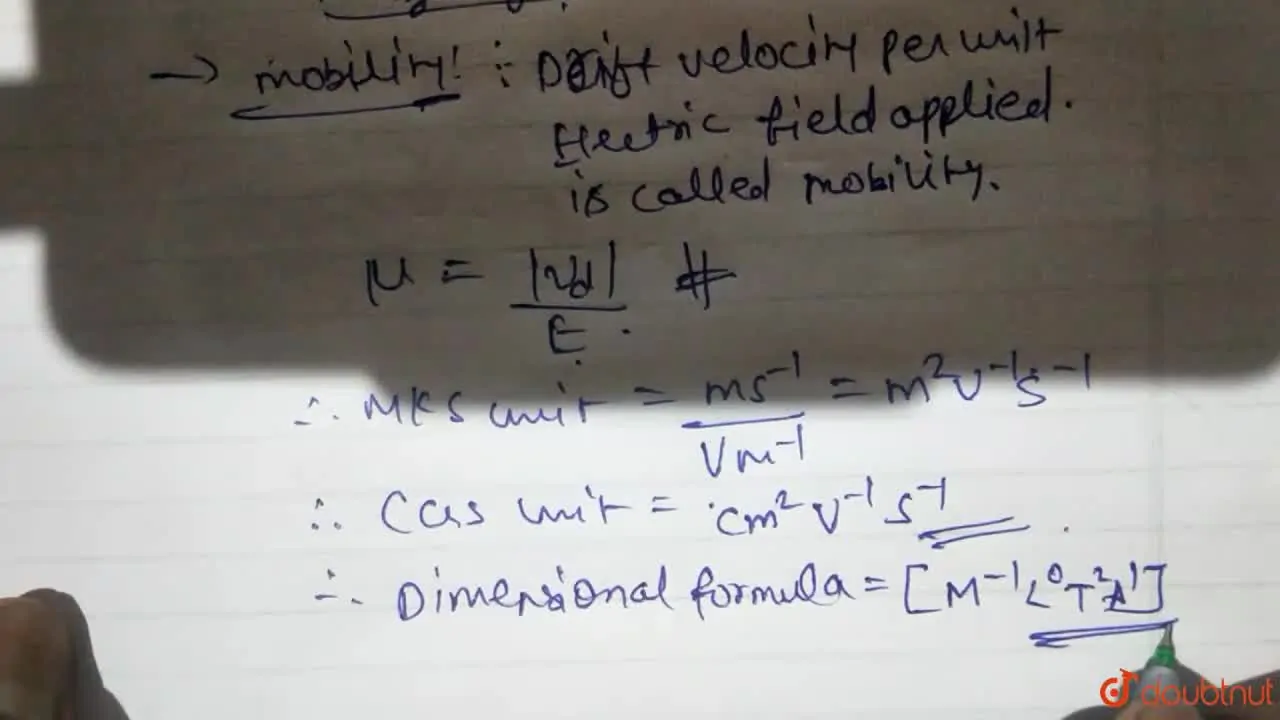 → mobility! : Drift velocity per unit
Electric field applied.
is called mobility.
μ = |vd| / E. #
∴ MKS unit = ms⁻¹ / Vm⁻¹ = m²V⁻¹s⁻¹
∴ CGS unit = cm² V⁻¹ s⁻¹
∴ Dimensional formula = [M⁻¹L⁰T²A¹]
doubtnut